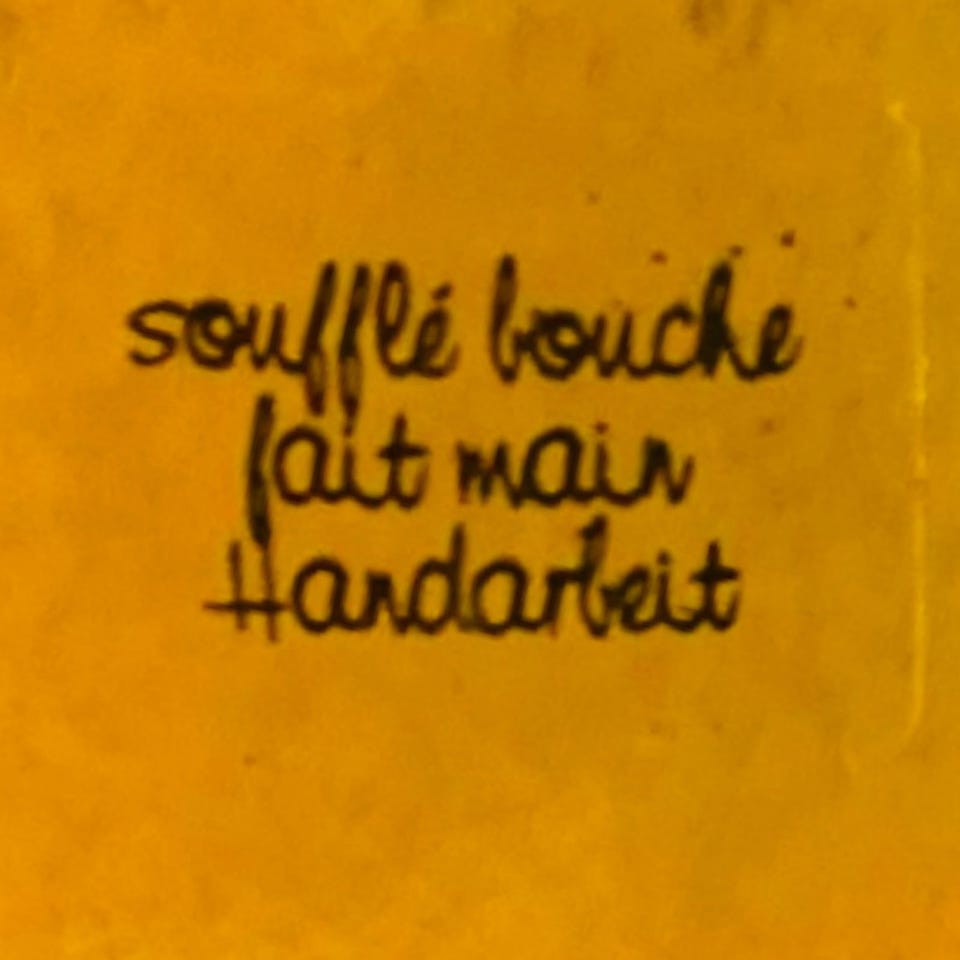 soufflé bouche
fait main
Handarbeit